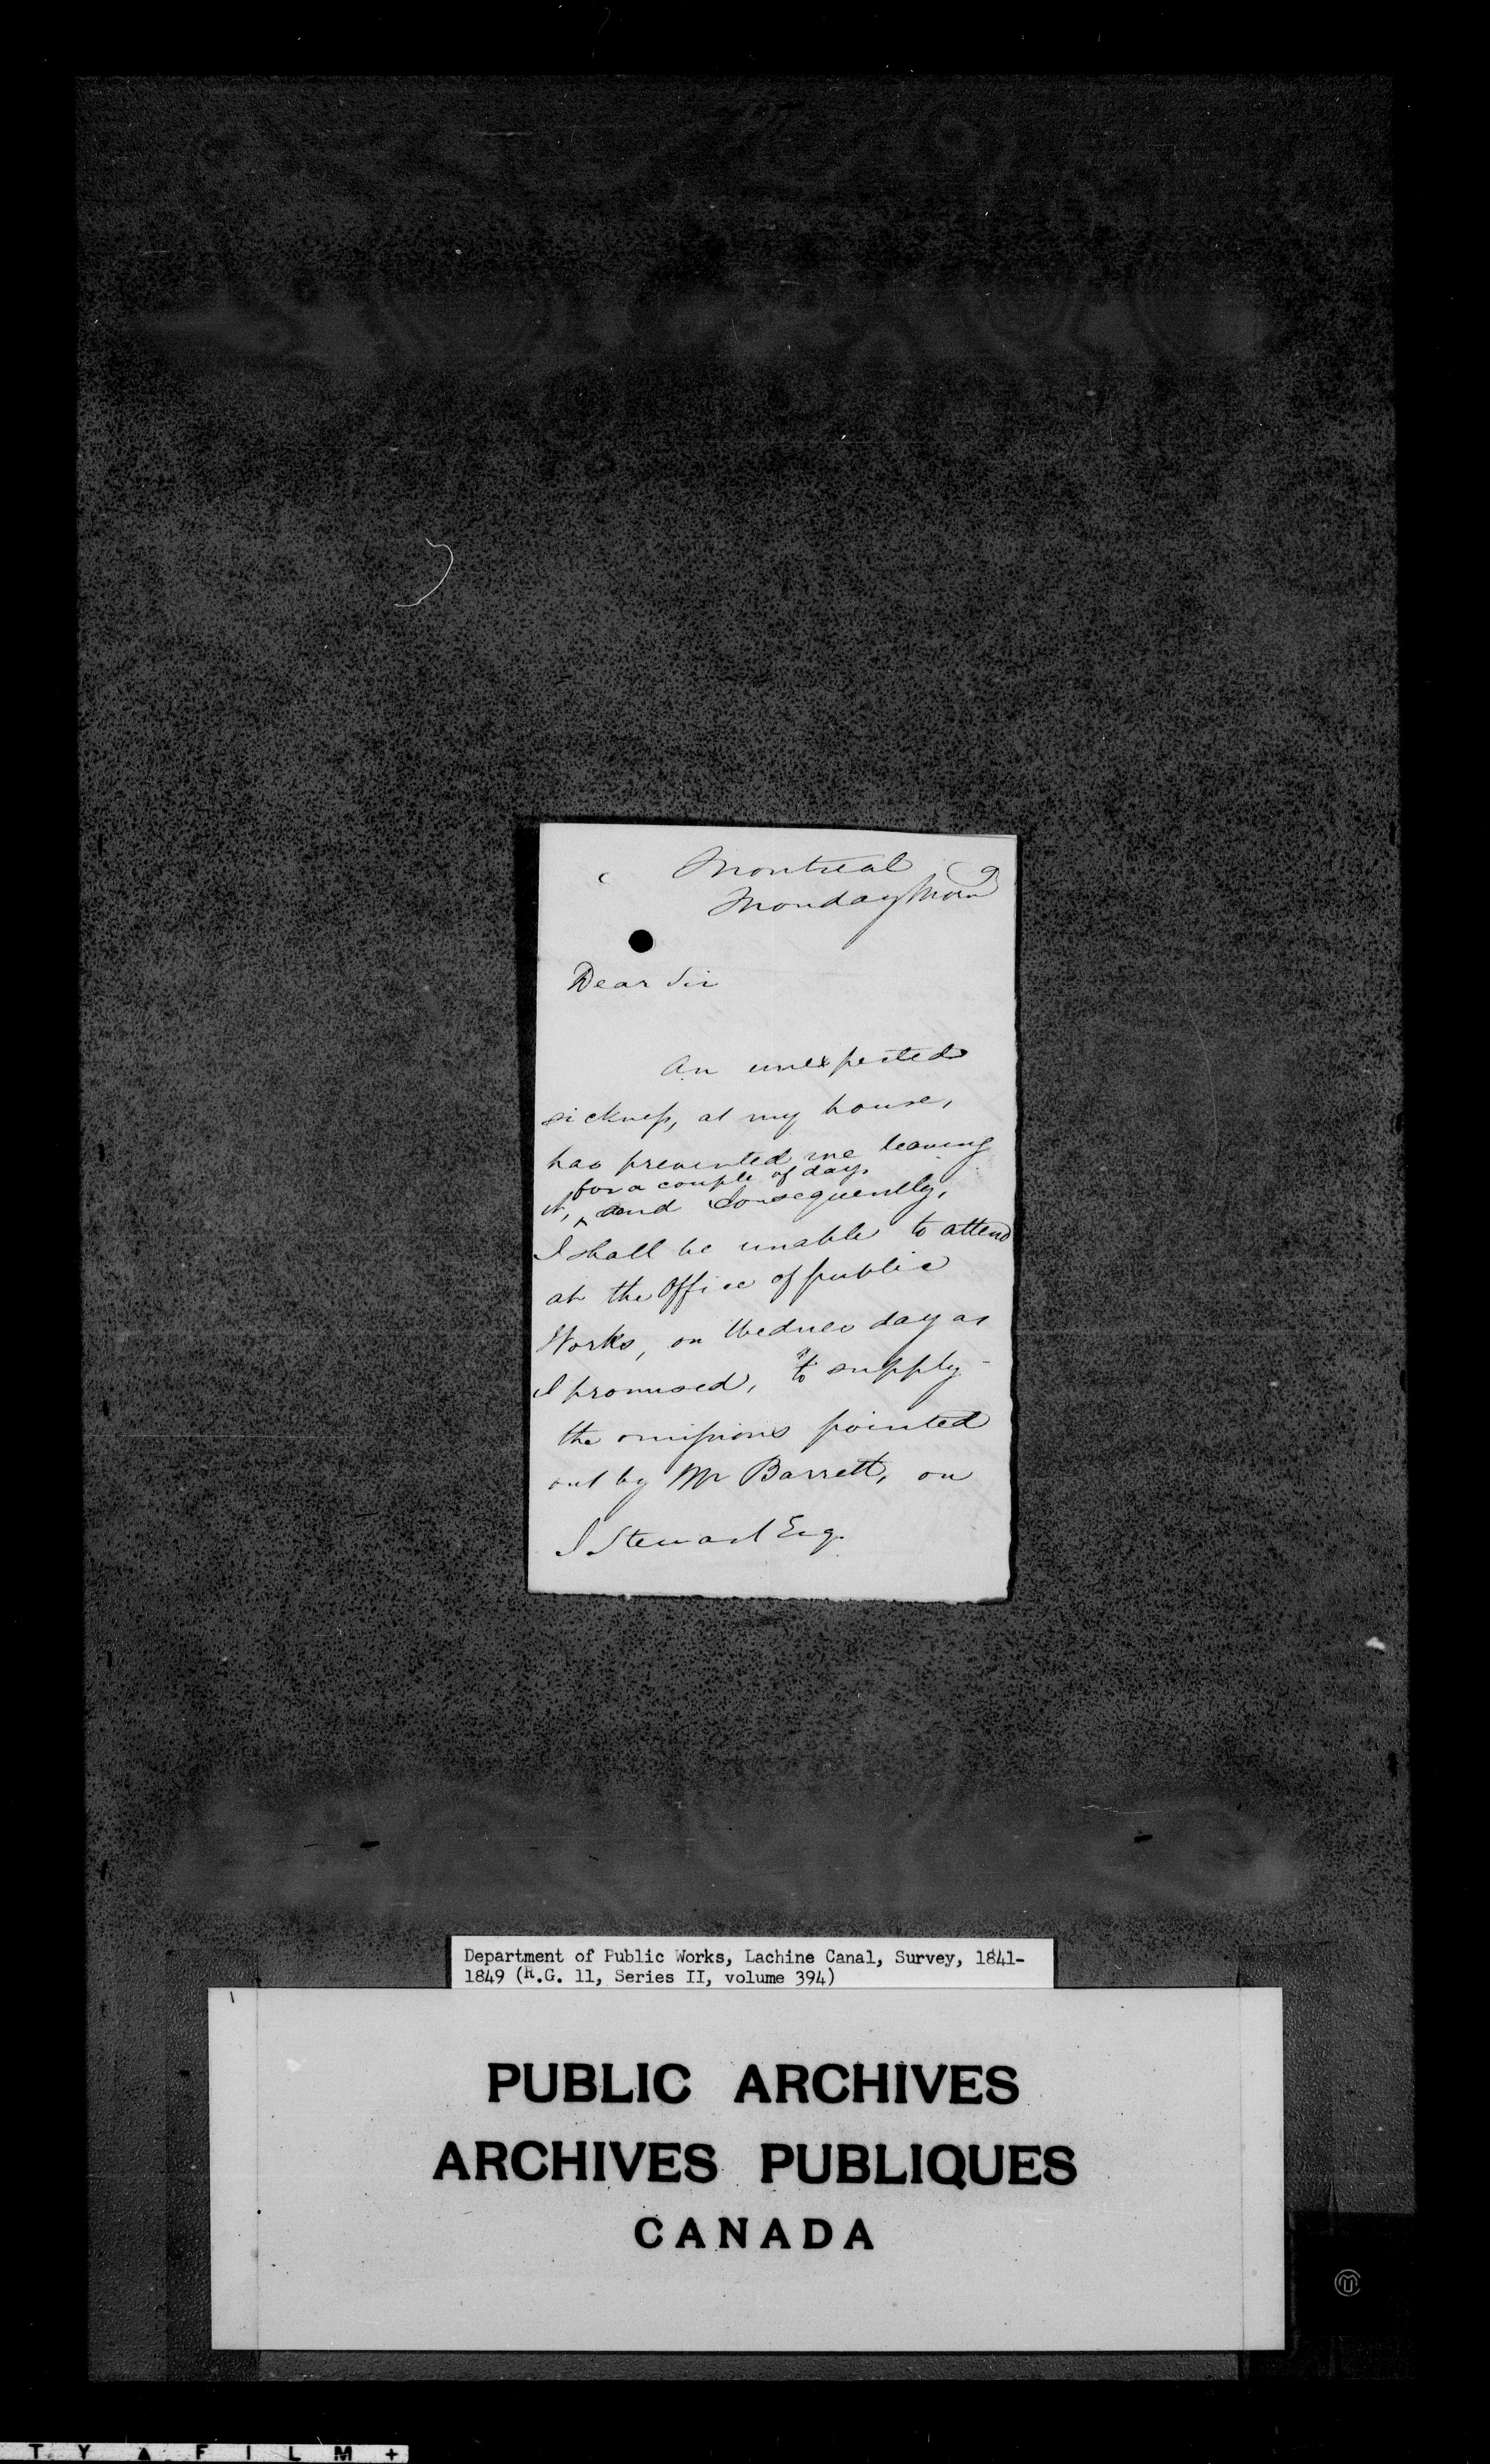 Montreal
Monday Morn
Dear Sir
An unexpected
sickness, at my house,
has prevented me leaving
for a couple of days
it, and consequently,
I shall be unable to attend
at the Office of public
Works, on Wednesday as
I promised, to supply
the omissions pointed
out by Mr Barrett, on
J Stewart Esq.
Department of Public Works, Lachine Canal, Survey, 1841-
1849 (R.G. 11, Series II, volume 394)
PUBLIC ARCHIVES
ARCHIVES PUBLIQUES
CANADA
T Y A F I L M +